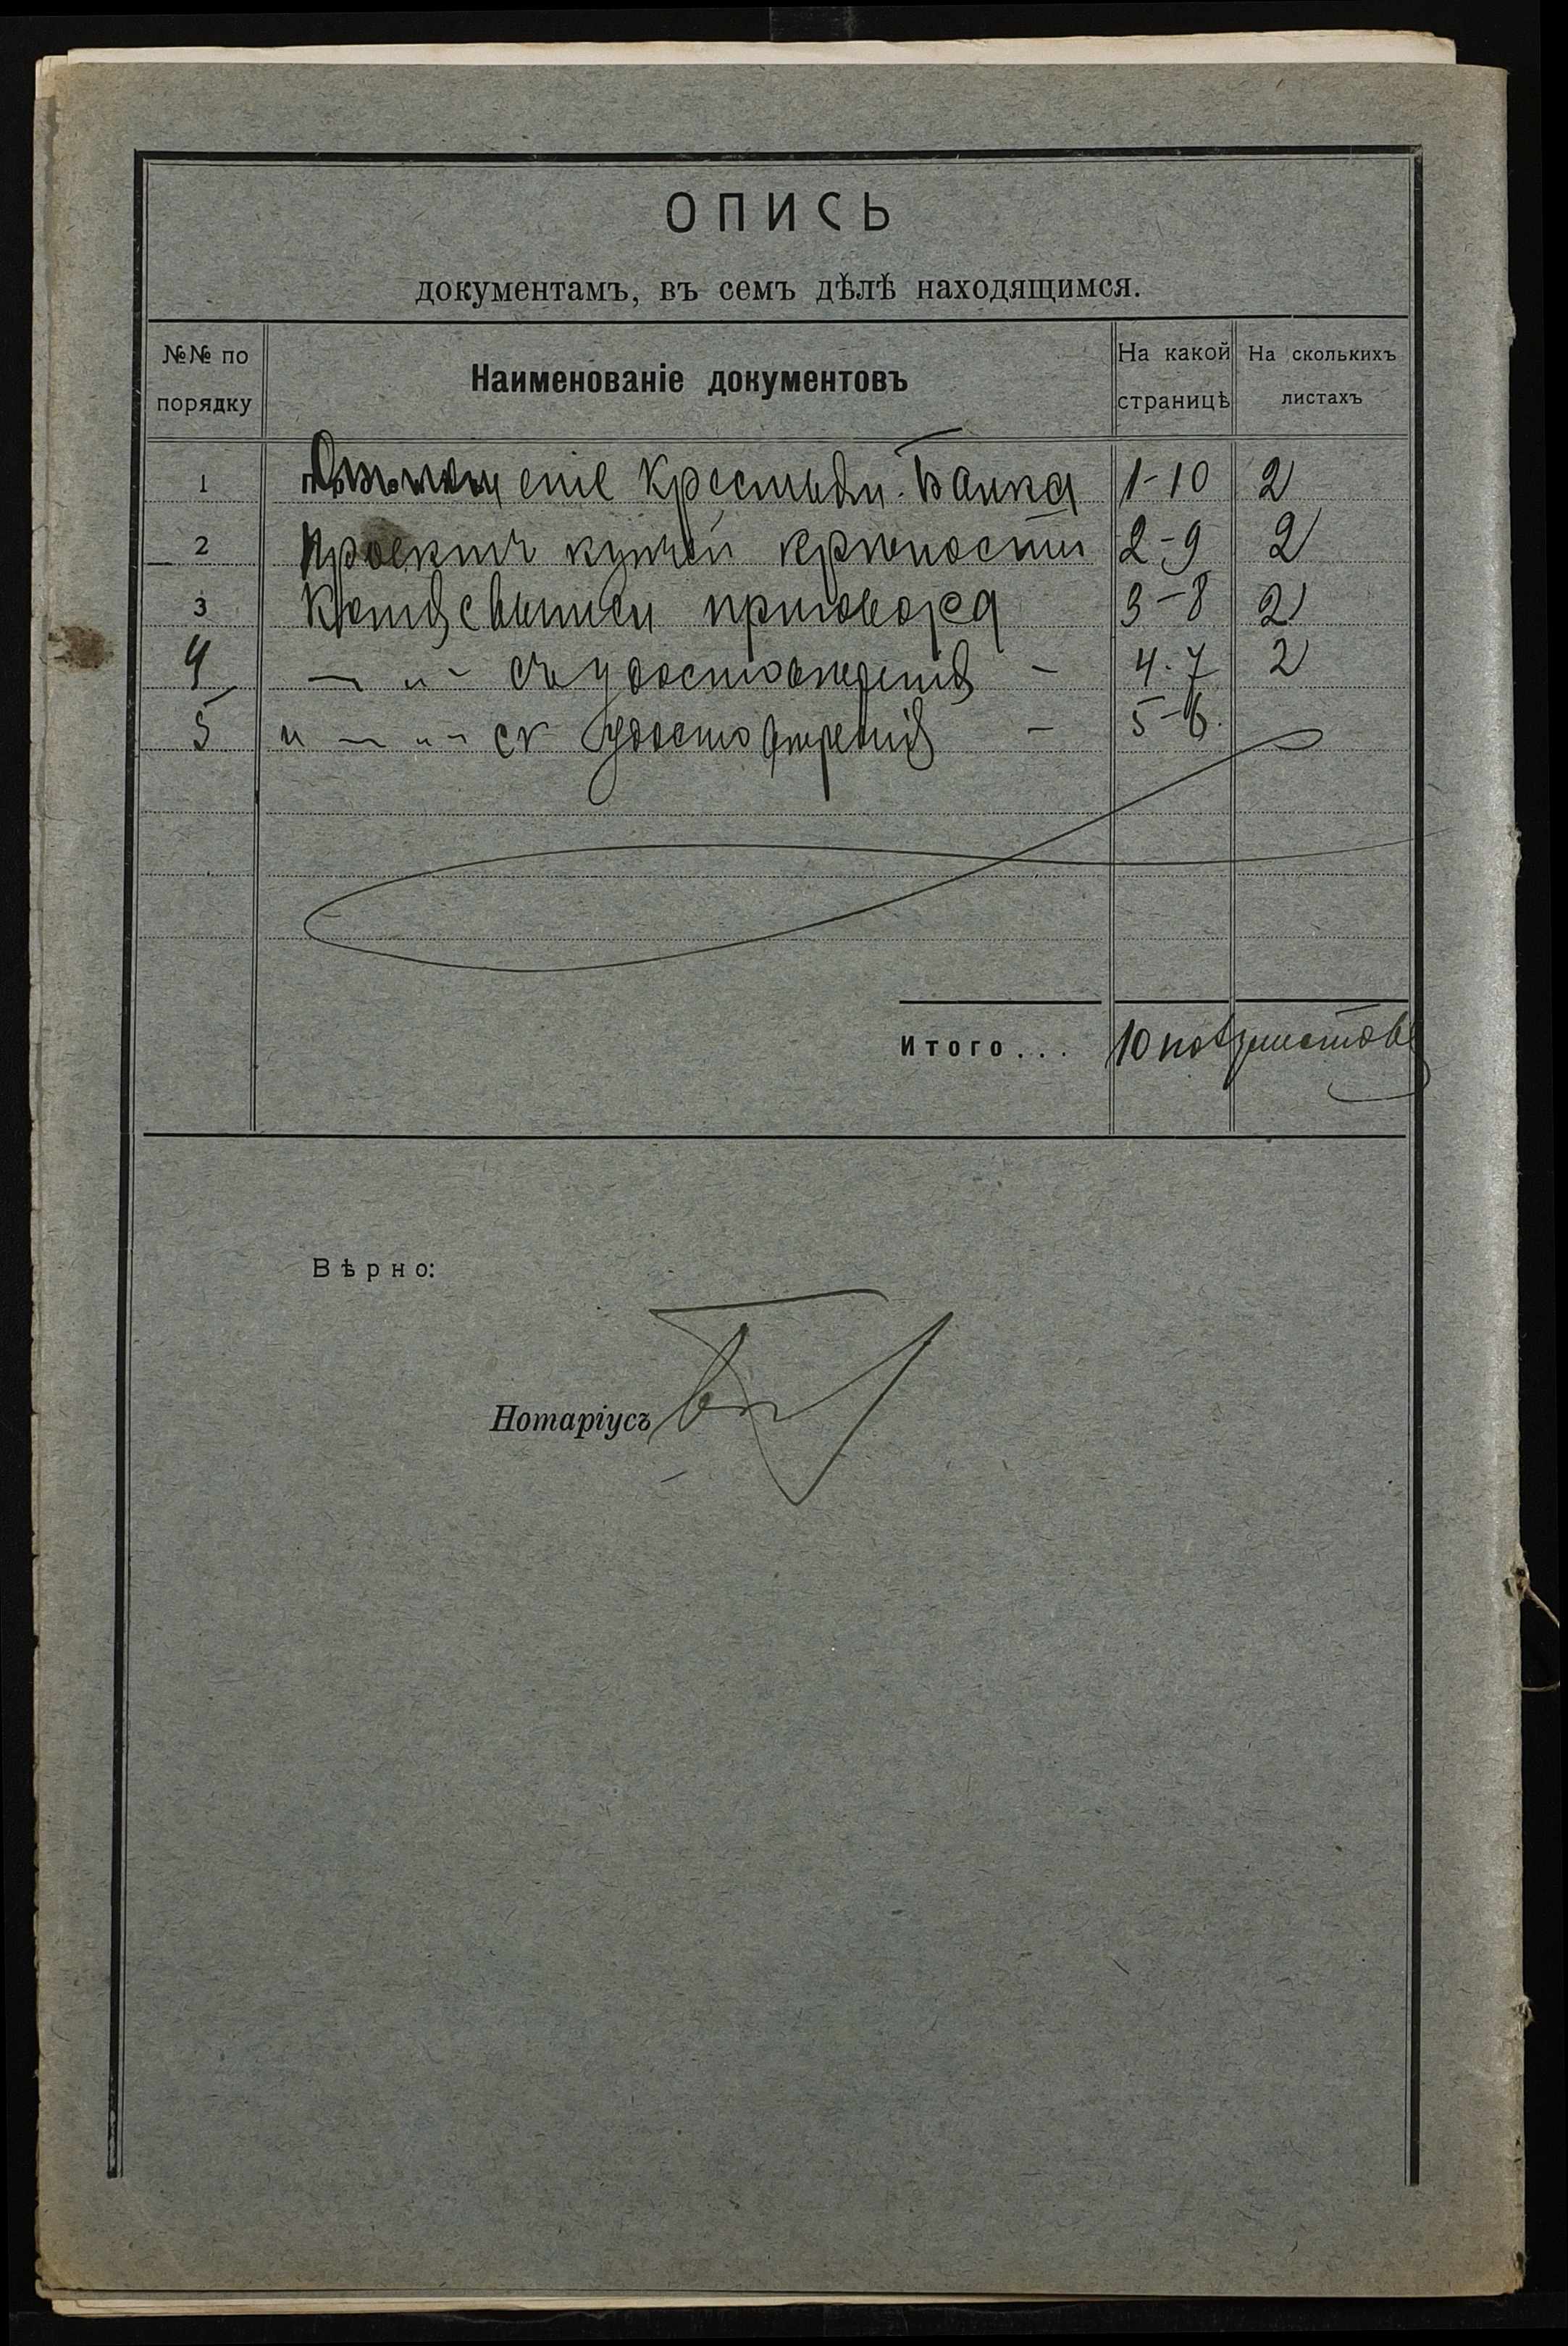 ОПИСЬ
документамъ, въ семъ дѣлѣ находящимся.
№№ по порядку
Наименованіе документовъ
На какой страницѣ
На сколькихъ листахъ
1 Крестьян. Банка 1-10 2
2 Проектъ купчей крѣпости 2-9 2
3 Копія с выписи приговора 3-8 2
4 — „ - съ удостовѣренія - 4-7 2
5 и — „ - съ удостовѣренія - 5-6.
Итого... 10 полулистовъ
Вѣрно:
Нотаріусъ